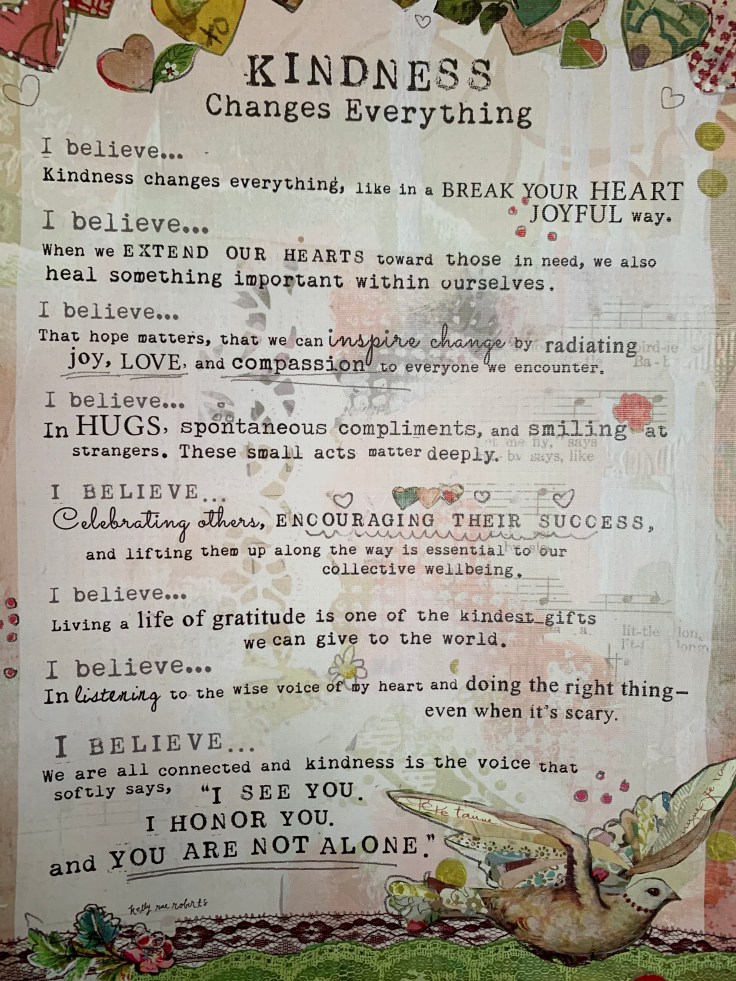 KINDNESS
Changes Everything
I believe...
Kindness changes everything, like in a BREAK YOUR HEART
JOYFUL way.
I believe...
When we EXTEND OUR HEARTS toward those in need, we also
heal something important within ourselves.
I believe...
That hope matters, that we can inspire change by radiating
joy, LOVE, and compassion to everyone we encounter.
I believe...
In HUGS, spontaneous compliments, and smiling at
strangers. These small acts matter deeply.
I BELIEVE...
Celebrating others, ENCOURAGING THEIR SUCCESS,
and lifting them up along the way is essential to our
collective wellbeing.
I believe...
Living a life of gratitude is one of the kindest gifts
we can give to the world.
I believe...
In listening to the wise voice of my heart and doing the right thing—
even when it's scary.
I BELIEVE...
We are all connected and kindness is the voice that
softly says, "I SEE YOU.
I HONOR YOU.
and YOU ARE NOT ALONE."
kelly rae roberts